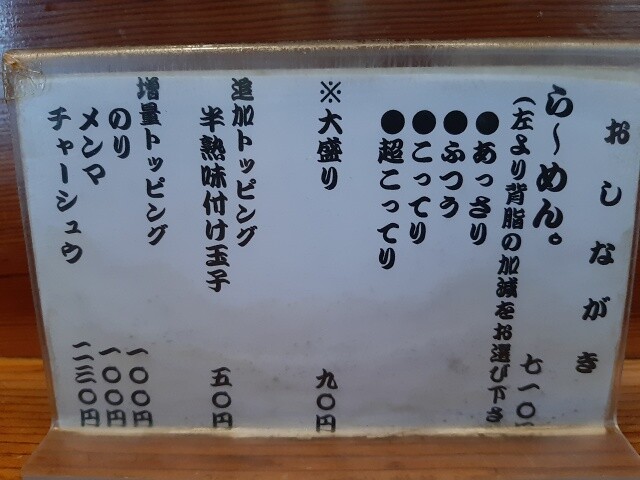 おしながき
ら～めん。 七一〇
（左より背脂の加減をお選び下さ
●あっさり
●ふつう
●こってり
●超こってり
※大盛り 九〇円
追加トッピング
半熟味付け玉子 五〇円
増量トッピング
のり 一〇〇円
メンマ 一〇〇円
チャーシュウ 二三〇円